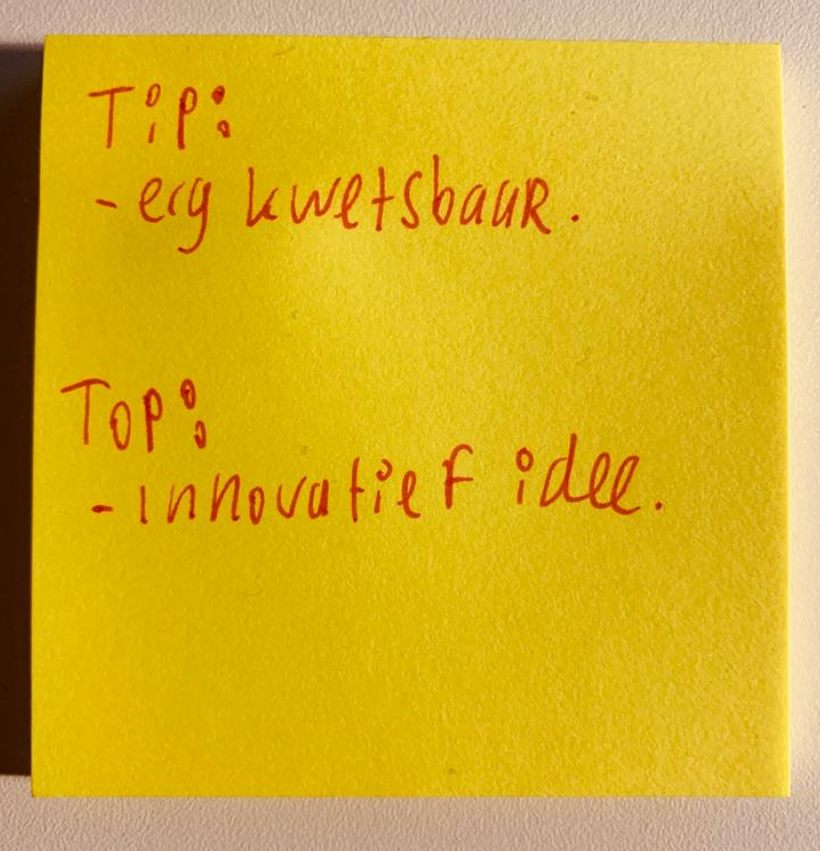 Tip:
- erg kwetsbaar.
Top:
- innovatief idee.